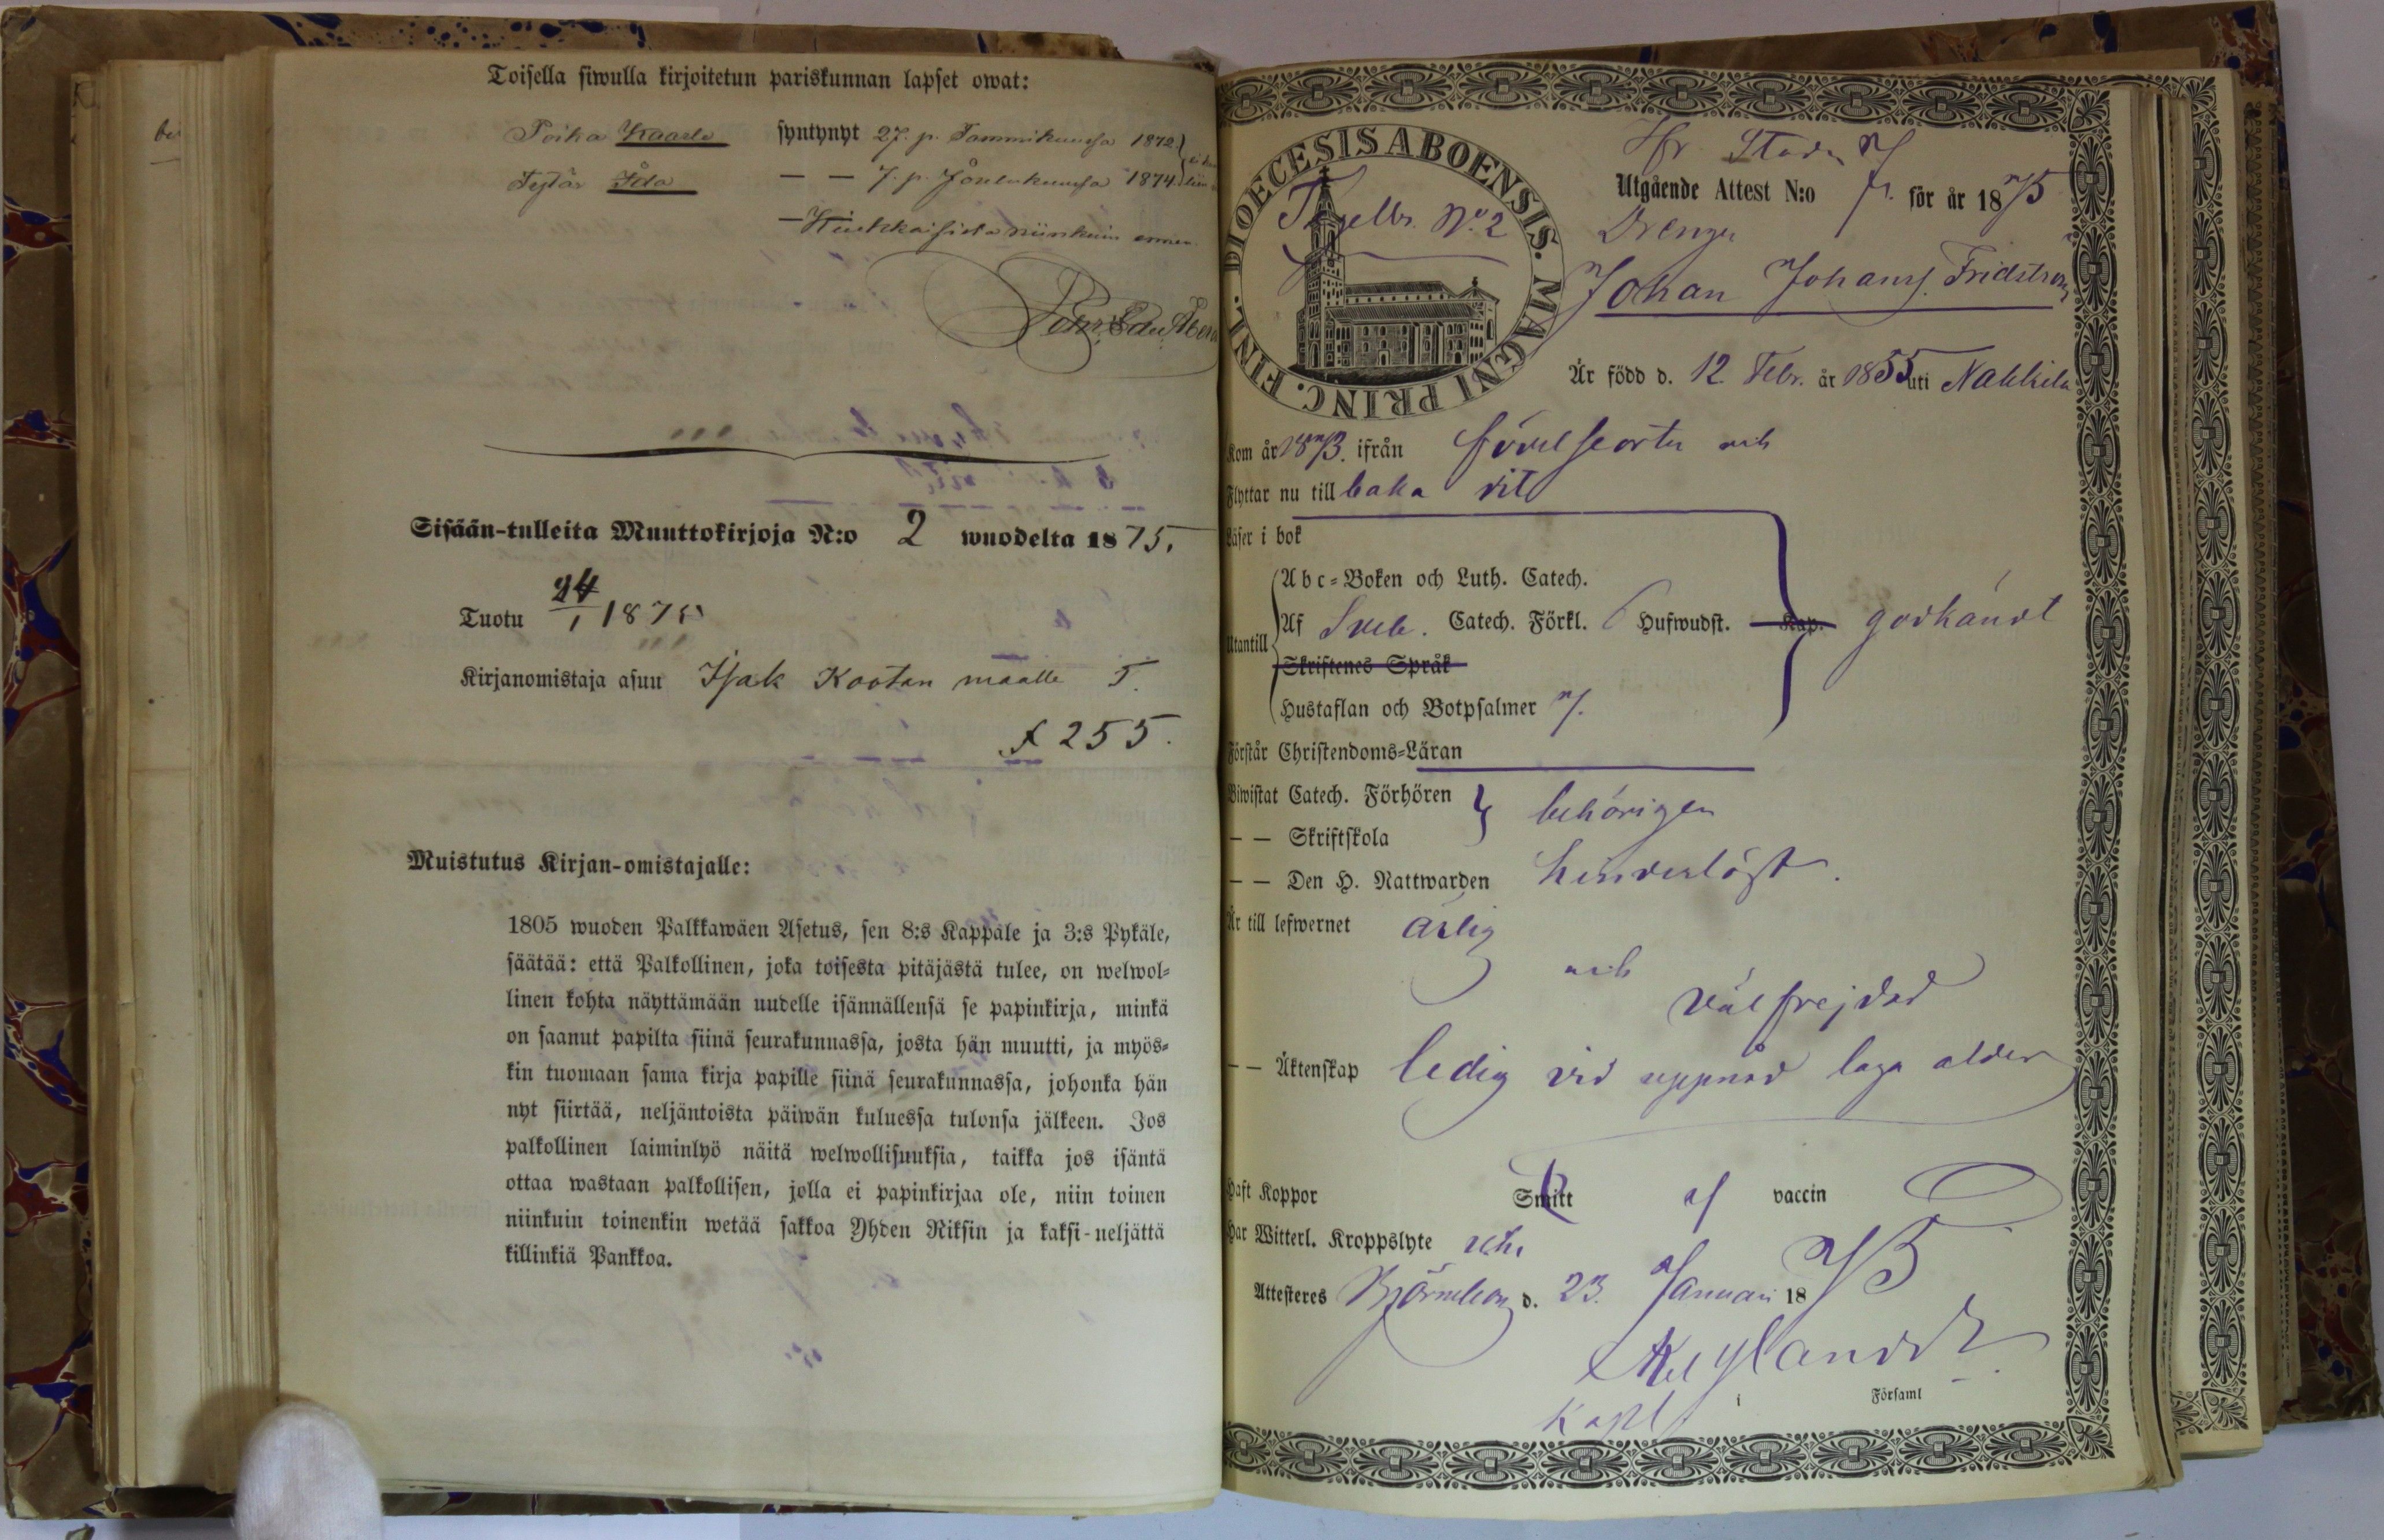 Toisella siwulla kirjoitetun pariskunnan lapset owat:
Poika Kaarlo syntynyt 27. p. Tammikuussa 1872
Tytär Ida — — 7. p. Joulukuussa 1874
Tuotu 24/1 1875
Sisään-tulleita Muuttokirjoja N:o 2 wuodelta 1875.
Kirjanomistaja asuu Isak Kootan maalle T.
f 255.
Muistutus Kirjan-omistajalle:
1805 wuoden Palkkawäen Asetus, sen 8:s Kappale ja 3:s Pykäle,
säätää: että Palkollinen, joka toisesta pitäjästä tulee, on welwol-
linen kohta näyttämään uudelle isännällensä se papinkirja, minkä
on saanut papilta siinä seurakunnassa, josta hän muutti, ja myös-
kin tuomaan sama kirja papille siinä seurakunnassa, johonka hän
nyt siirtää, neljäntoista päiwän kuluessa tulonsa jälkeen. Jos
palkollinen laiminlyö näitä welwollisuuksia, taikka jos isäntä
ottaa wastaan palkollisen, jolla ei papinkirjaa ole, niin toinen
niinkuin toinenkin wetää sakkoa Yhden Riksin ja kaksi-neljättä
killinkiä Pankkoa.
DIOECESIS ABOENSIS. MAGNI PRINC. FINL.
No. 2
Utgående Attest N:o 7. för år 1875
Drengen
Johan Johanss. Fridström
Är född d. 12 Febr. år 1855 uti Nakkila
Kom år 1873. ifrån födelseorten och
Flyttar nu till baka dit
Läser i bok
Abc-Boken och Luth. Catech.
Utantill Af Sveb. Catech. Förkl. 6 Hufwudst. Kap. godkändt
Skriftenes Språk
Hustaflan och Botpsalmer
Förstår Christendoms-Läran
Biwistat Catech. Förhören behörigen
— — Skriftskola
— — Den H. Nattwarden hinderlöst.
Är till lefwernet ärlig
och
välfrejdad
— — Äktenskap ledig vid uppnåd laga ålder
Haft Koppor Smitt af vaccin
Har Witterl. Kroppslyte
Attesteres Björneborg d. 23. Januari 1875
i Församl
Kapl.